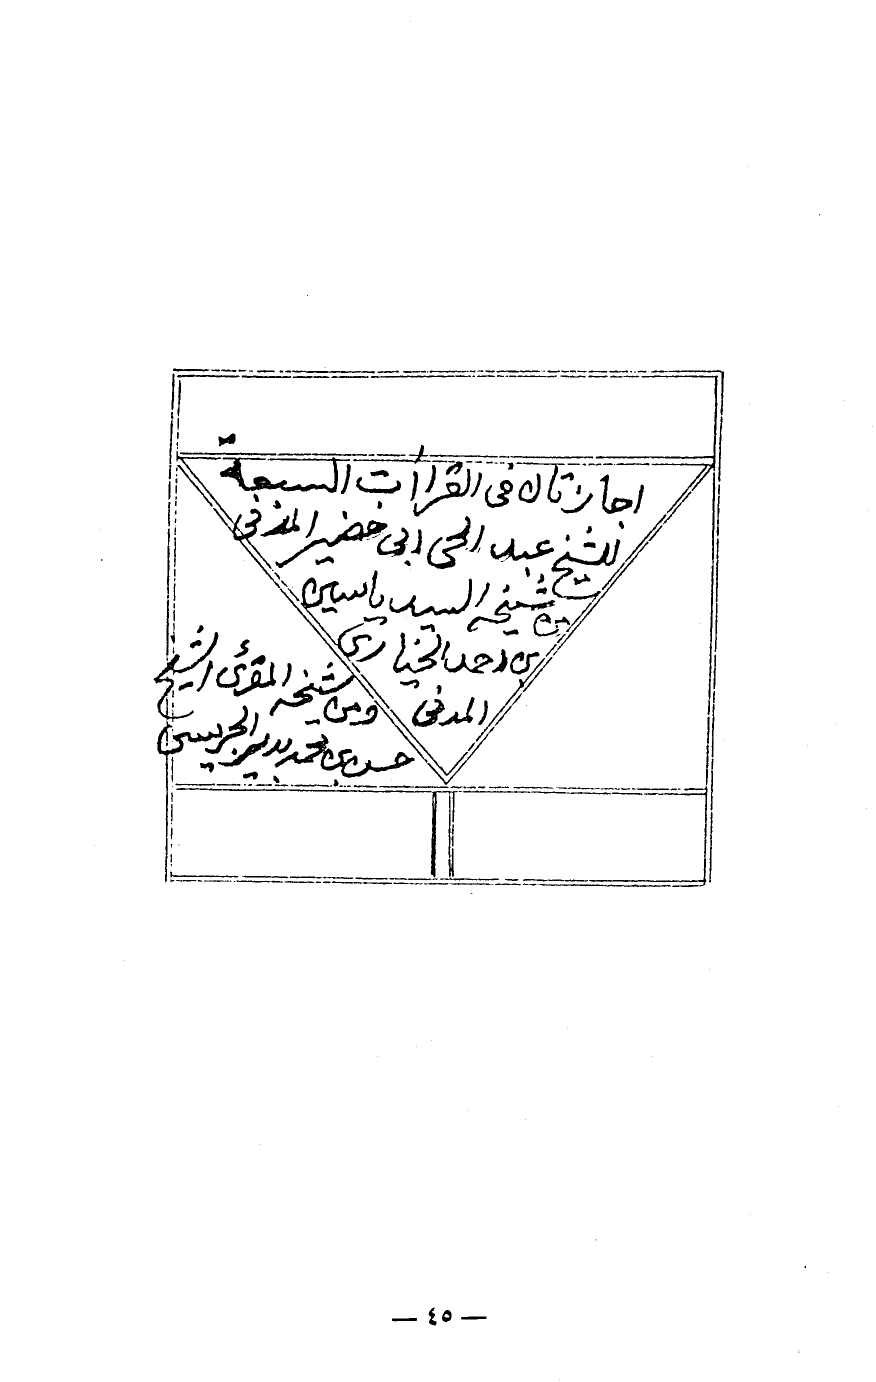 اجازتان فى القراءات السبعة
للشيخ عبد الحى ابى خضير المدنى
من شيخه السيد ياسين
بن احمد الخيارى
المدنى
ومن شيخه المقرئ الشيخ
حسن بن محمد بدير الجريسى
— ٤٥ —